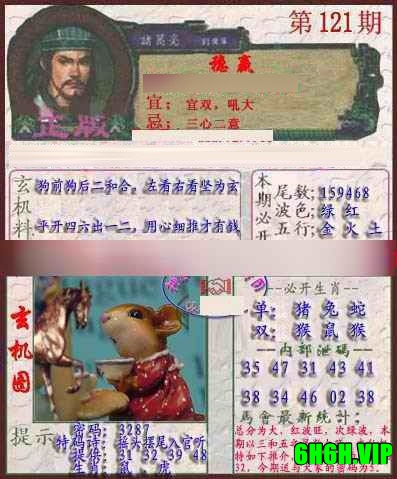 第121期
諸葛亮
稳赢
宜：官双，吼大
忌：三心二意
正版
玄机料
狗前狗后二和合。左看右看坚为玄
乎开四六出一二，用心细推才有戏
本期必开
尾数；159468
波色；绿 红
五行；金 火 土
玄机图
--必开生肖--
单：猪 兔 蛇
双：猴 鼠 猴
--内部泄码--
35 47 31 43 41
38 34 46 02 38
馬會最新統計：
总分为大，红波旺，次绿波，本
32，今期送与大家的密码为5.
提示
密码：3287
特码诗：摇头摆尾入官听
提供：31 32 39 48
生肖：鼠、虎
6HGH.VIP